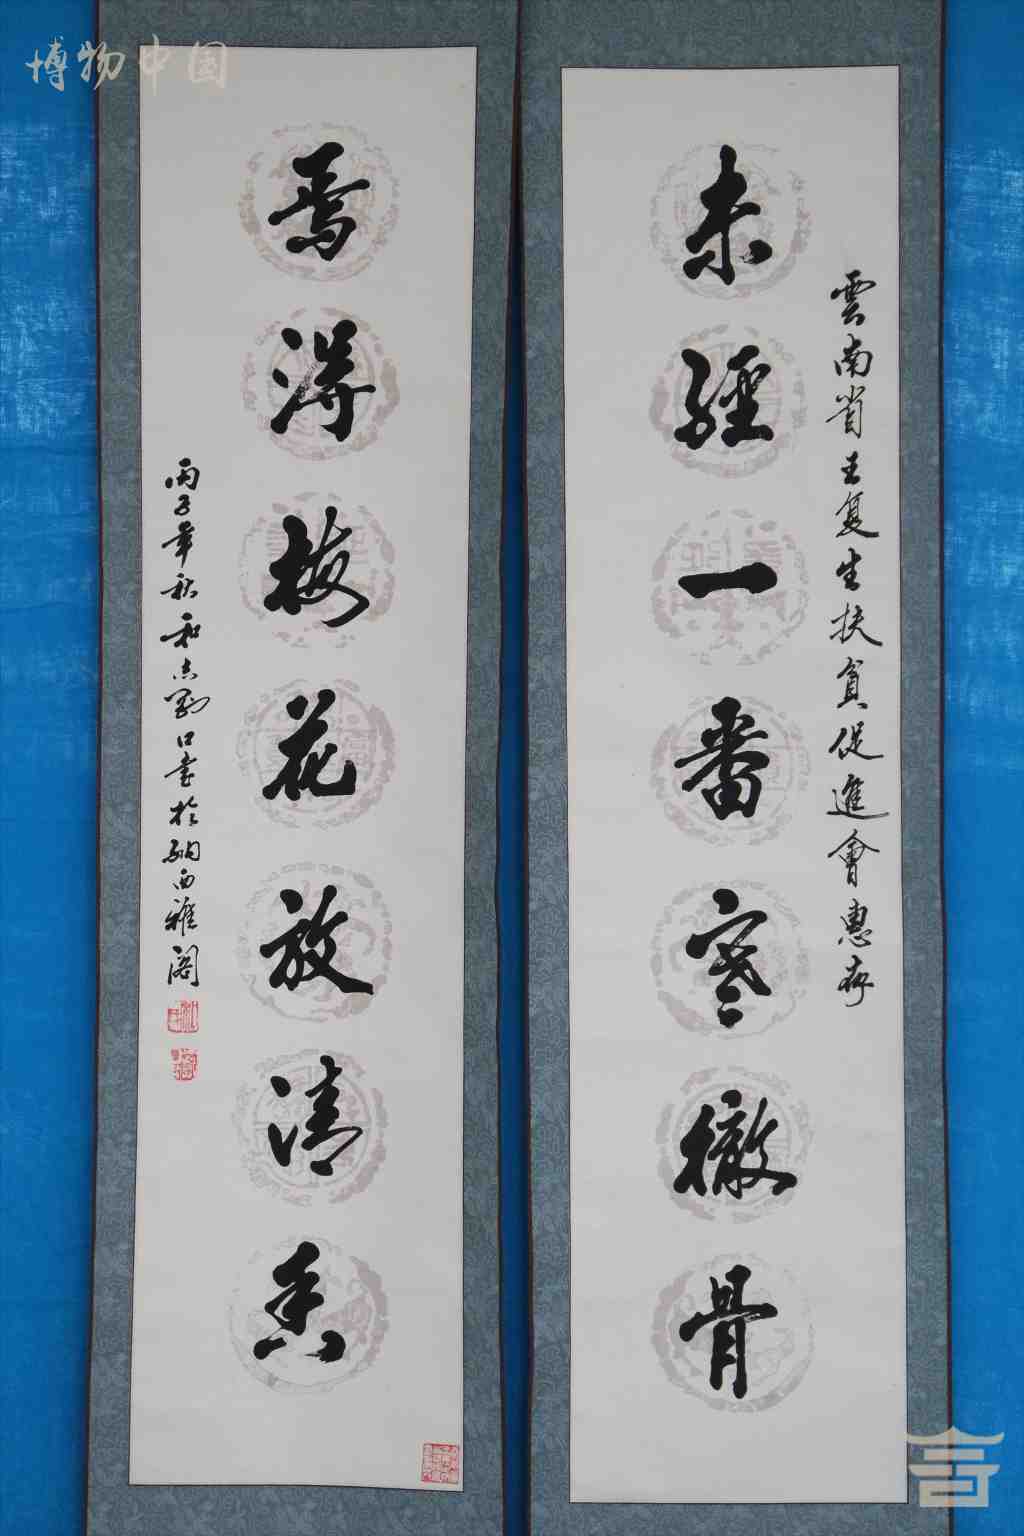 博物中国
雲南省王复生扶貧促進會惠存
未經一番寒徹骨
焉得梅花放清香
丙子年秋和志刚口書於納西雅阁